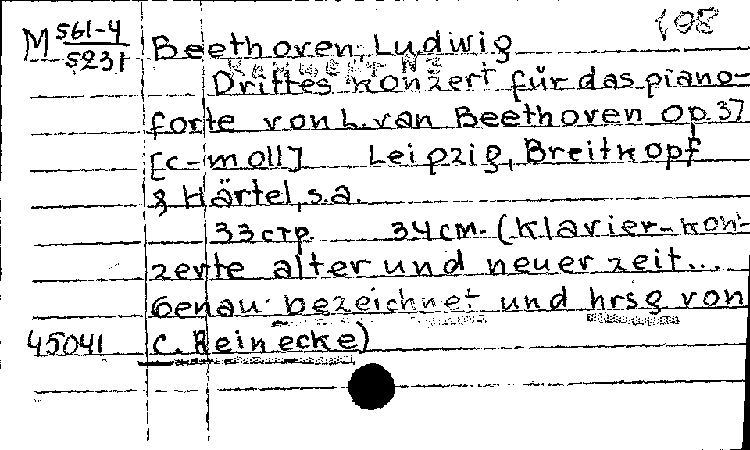 108
M 561-4
5231
Beethoven, Ludwig
Drittes konzert für das piano-
forte von L. van Beethoven Op. 37
[c-moll] Leipzig, Breitkopf
& Härtel, s.a.
33 стр. 34 см. (Klavier-kon-
zerte alter und neuer zeit...
Genau bezeichnet und hrsg von
45041 C. Reinecke)